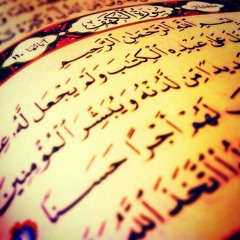 سُورَةُ الْكَهْفِ
اللَّهِ الرَّحْمَٰنِ الرَّحِيمِ
عَلَىٰ عَبْدِهِ الْكِتَٰبَ وَلَمْ يَجْعَل لَّهُ
مِّن لَّدُنْهُ وَيُبَشِّرَ الْمُؤْمِنِينَ
لَهُمْ أَجْرًا حَسَنًا
اتَّخَذَ اللَّهُ